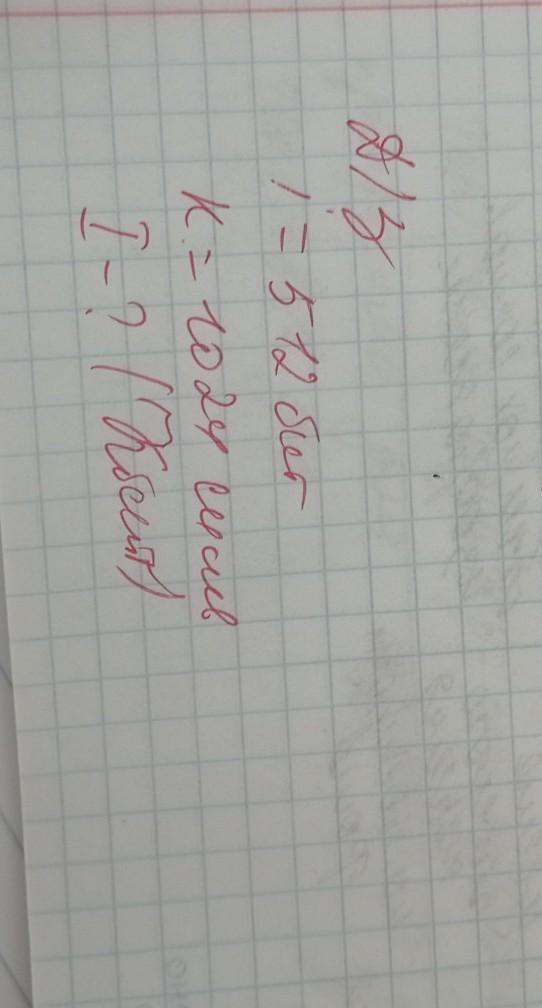 Д/З
i = 512 бит
K = 1024 символ
I - ? (Кбайт)